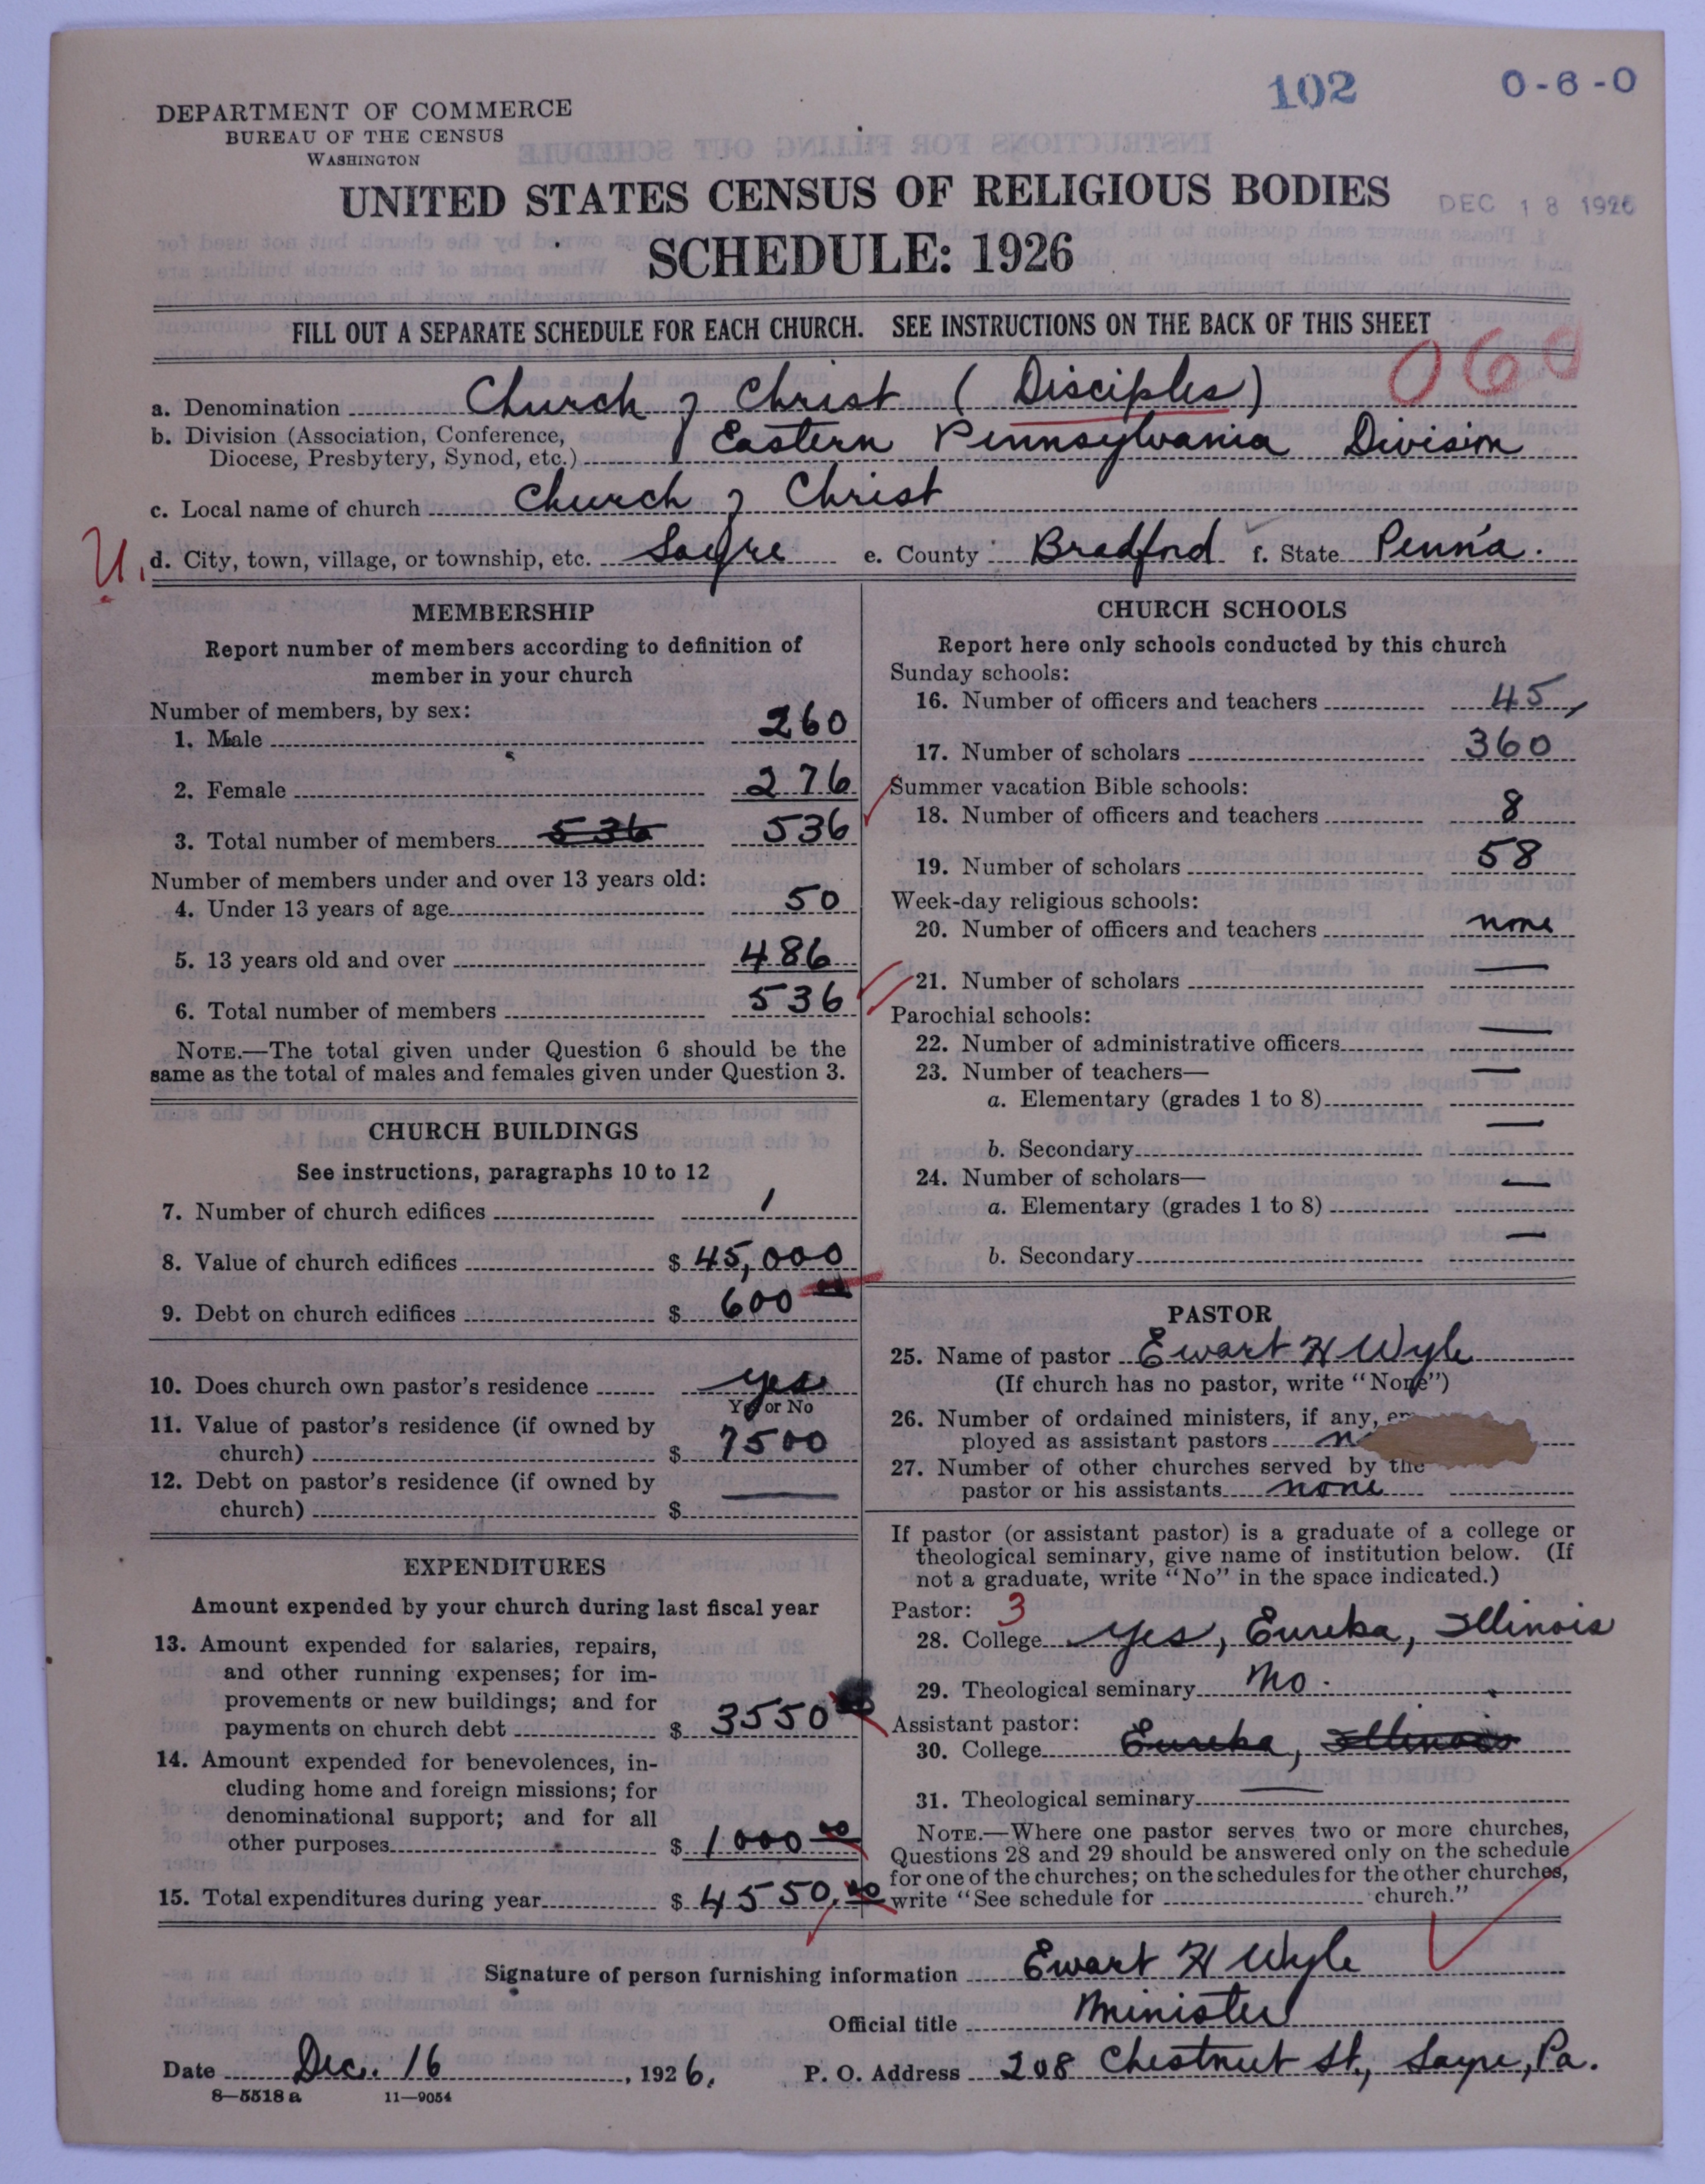 102
0-6-0
DEPARTMENT OF COMMERCE
BUREAU OF THE CENSUS
WASHINGTON
UNITED STATES CENSUS OF RELIGIOUS BODIES
DEC 18 1926
SCHEDULE: 1926
FILL OUT A SEPARATE SCHEDULE FOR EACH CHURCH. SEE INSTRUCTIONS ON THE BACK OF THIS SHEET
060
a. Denomination Church of Christ (Disciples)
b. Division (Association, Conference,
Diocese, Presbytery, Synod, etc.) Eastern Pennsylvania Division
c. Local name of church Church of Christ
U.
d. City, town, village, or township, etc. Sayre e. County Bradford f. State Penn'a.
MEMBERSHIP
Report number of members according to definition of
member in your church
Number of members, by sex:
1. Male 260
2. Female 276
3. Total number of members 536 536
Number of members under and over 13 years old:
4. Under 13 years of age 50
5. 13 years old and over 486
6. Total number of members 536
NOTE.—The total given under Question 6 should be the
same as the total of males and females given under Question 3.
CHURCH BUILDINGS
See instructions, paragraphs 10 to 12
7. Number of church edifices 1
8. Value of church edifices $ 45,000
9. Debt on church edifices $ 600
10. Does church own pastor's residence yes
Yes or No
11. Value of pastor's residence (if owned by
church) $ 7500
12. Debt on pastor's residence (if owned by
church) $ —
EXPENDITURES
Amount expended by your church during last fiscal year
13. Amount expended for salaries, repairs,
and other running expenses; for im-
provements or new buildings; and for
payments on church debt $ 3550
14. Amount expended for benevolences, in-
cluding home and foreign missions; for
denominational support; and for all
other purposes $ 1000 00
15. Total expenditures during year $ 4550.00
CHURCH SCHOOLS
Report here only schools conducted by this church
Sunday schools:
16. Number of officers and teachers 45
17. Number of scholars 360
Summer vacation Bible schools:
18. Number of officers and teachers 8
19. Number of scholars 58
Week-day religious schools:
20. Number of officers and teachers none
21. Number of scholars —
Parochial schools:
22. Number of administrative officers —
23. Number of teachers—
a. Elementary (grades 1 to 8) —
b. Secondary —
24. Number of scholars—
a. Elementary (grades 1 to 8) —
b. Secondary —
PASTOR
25. Name of pastor Ewart H Wyle
(If church has no pastor, write "None")
26. Number of ordained ministers, if any, em
ployed as assistant pastors
27. Number of other churches served by the
pastor or his assistants none
If pastor (or assistant pastor) is a graduate of a college or
theological seminary, give name of institution below. (If
not a graduate, write "No" in the space indicated.)
Pastor: 3
28. College yes, Eureka, Illinois
29. Theological seminary No.
Assistant pastor:
30. College Eureka, Illinois
31. Theological seminary —
NOTE.—Where one pastor serves two or more churches,
Questions 28 and 29 should be answered only on the schedule
for one of the churches; on the schedules for the other churches,
write "See schedule for church."
Signature of person furnishing information Ewart H Wyle
Official title Minister
Date Dec. 16, 1926. P. O. Address 208 Chestnut St., Sayre, Pa.
8—5518 a 11—9054